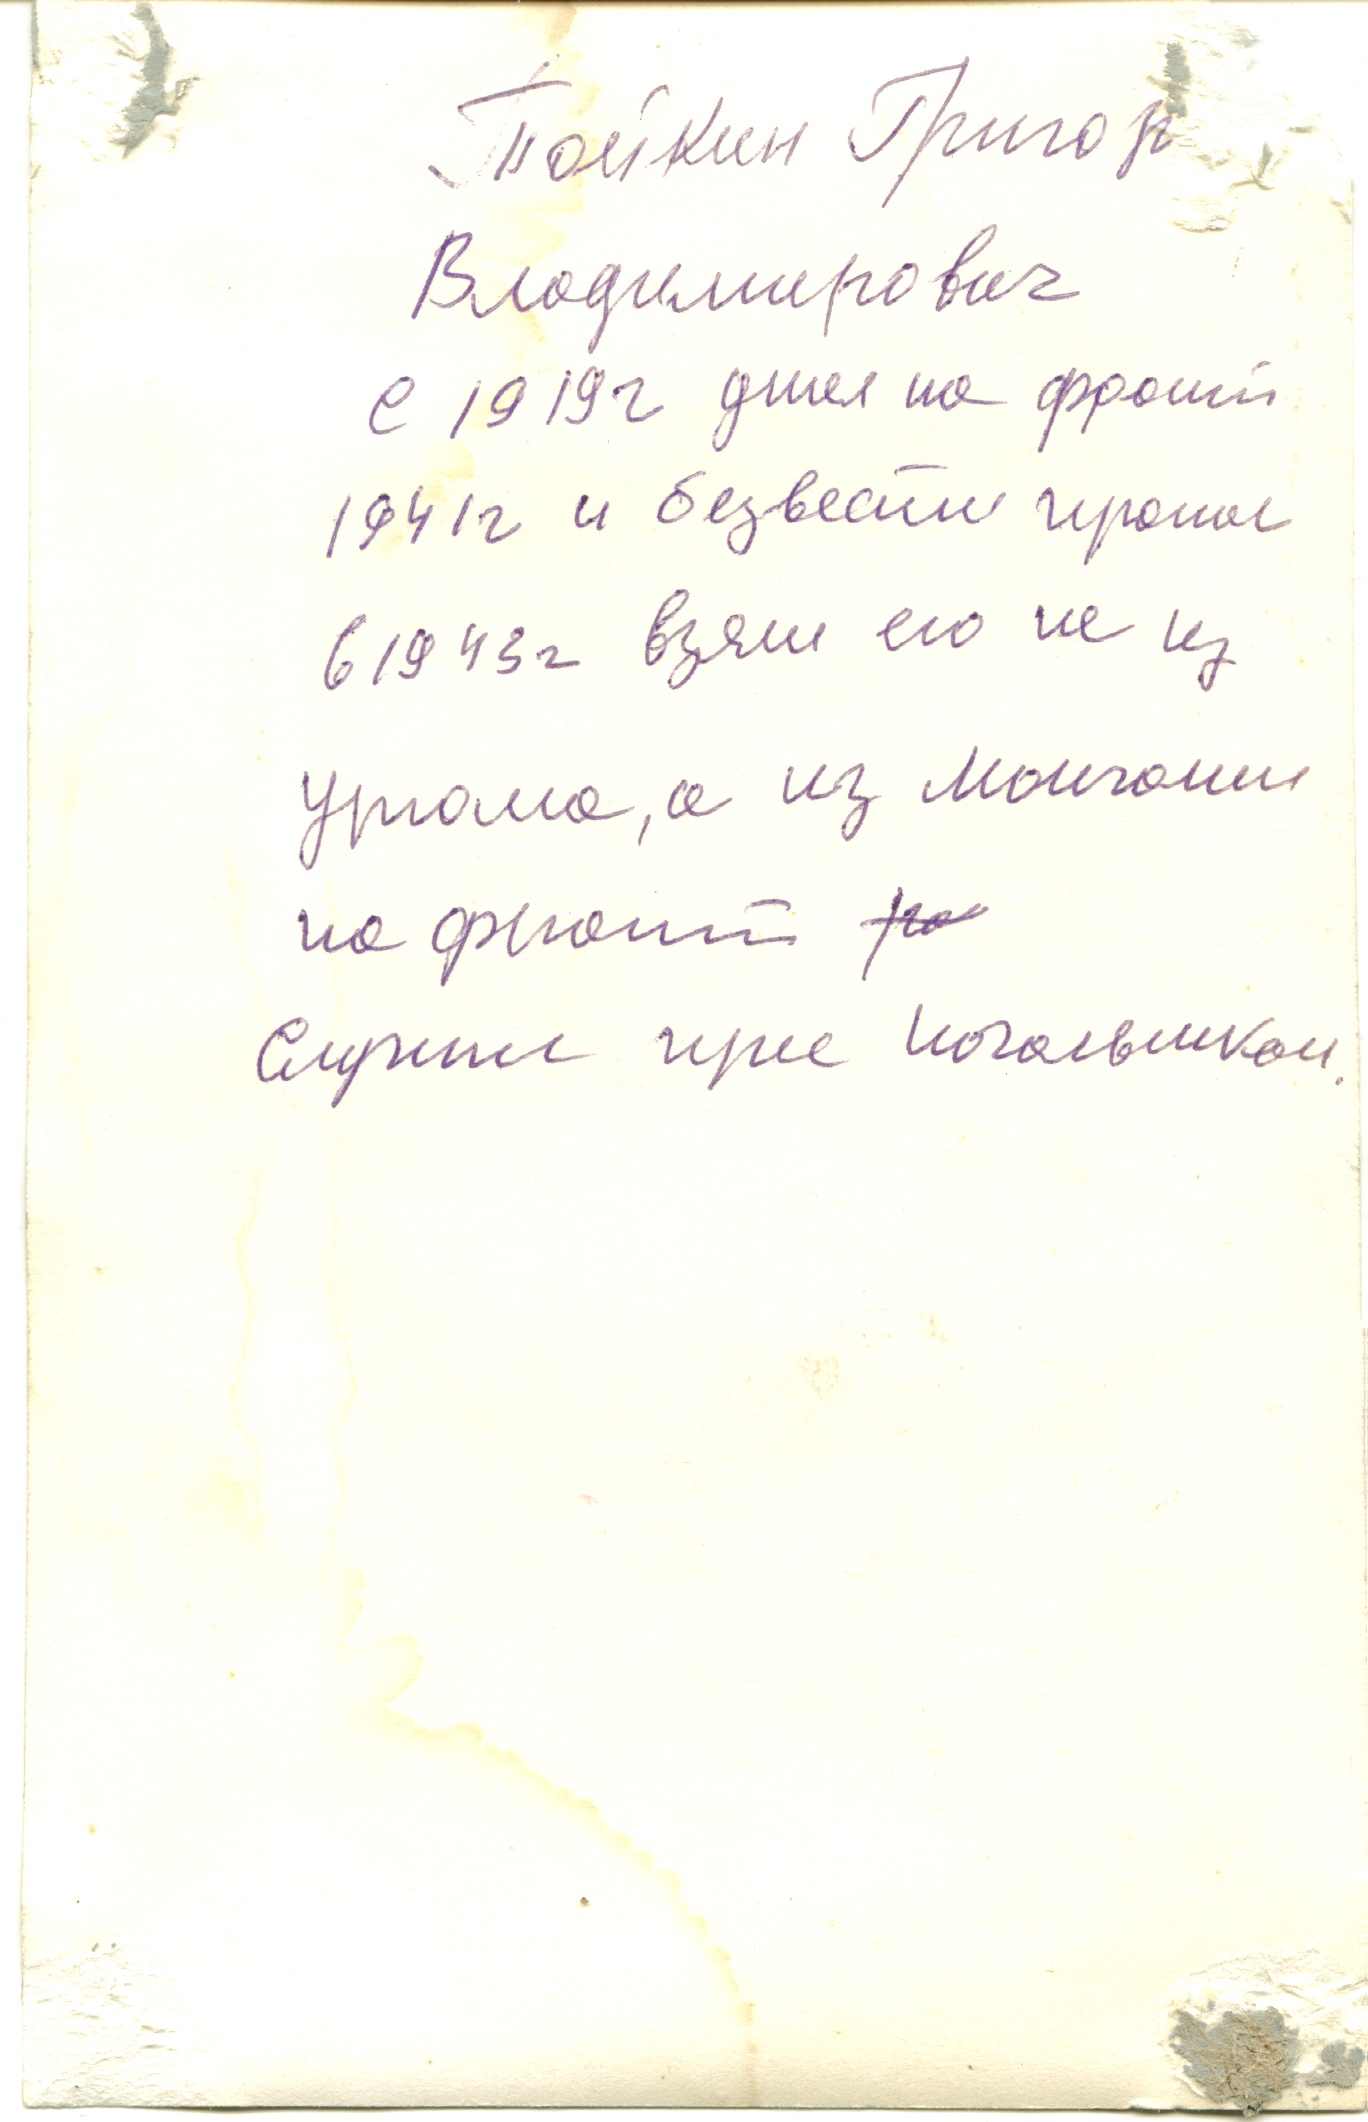 Тойкин Григор
Владимирович
с 1919г ушел на фронт
1941г и безвести пропал
в 1943г взяли его не из
Урома, а из Монголии
на фронт
Служил при начальником.